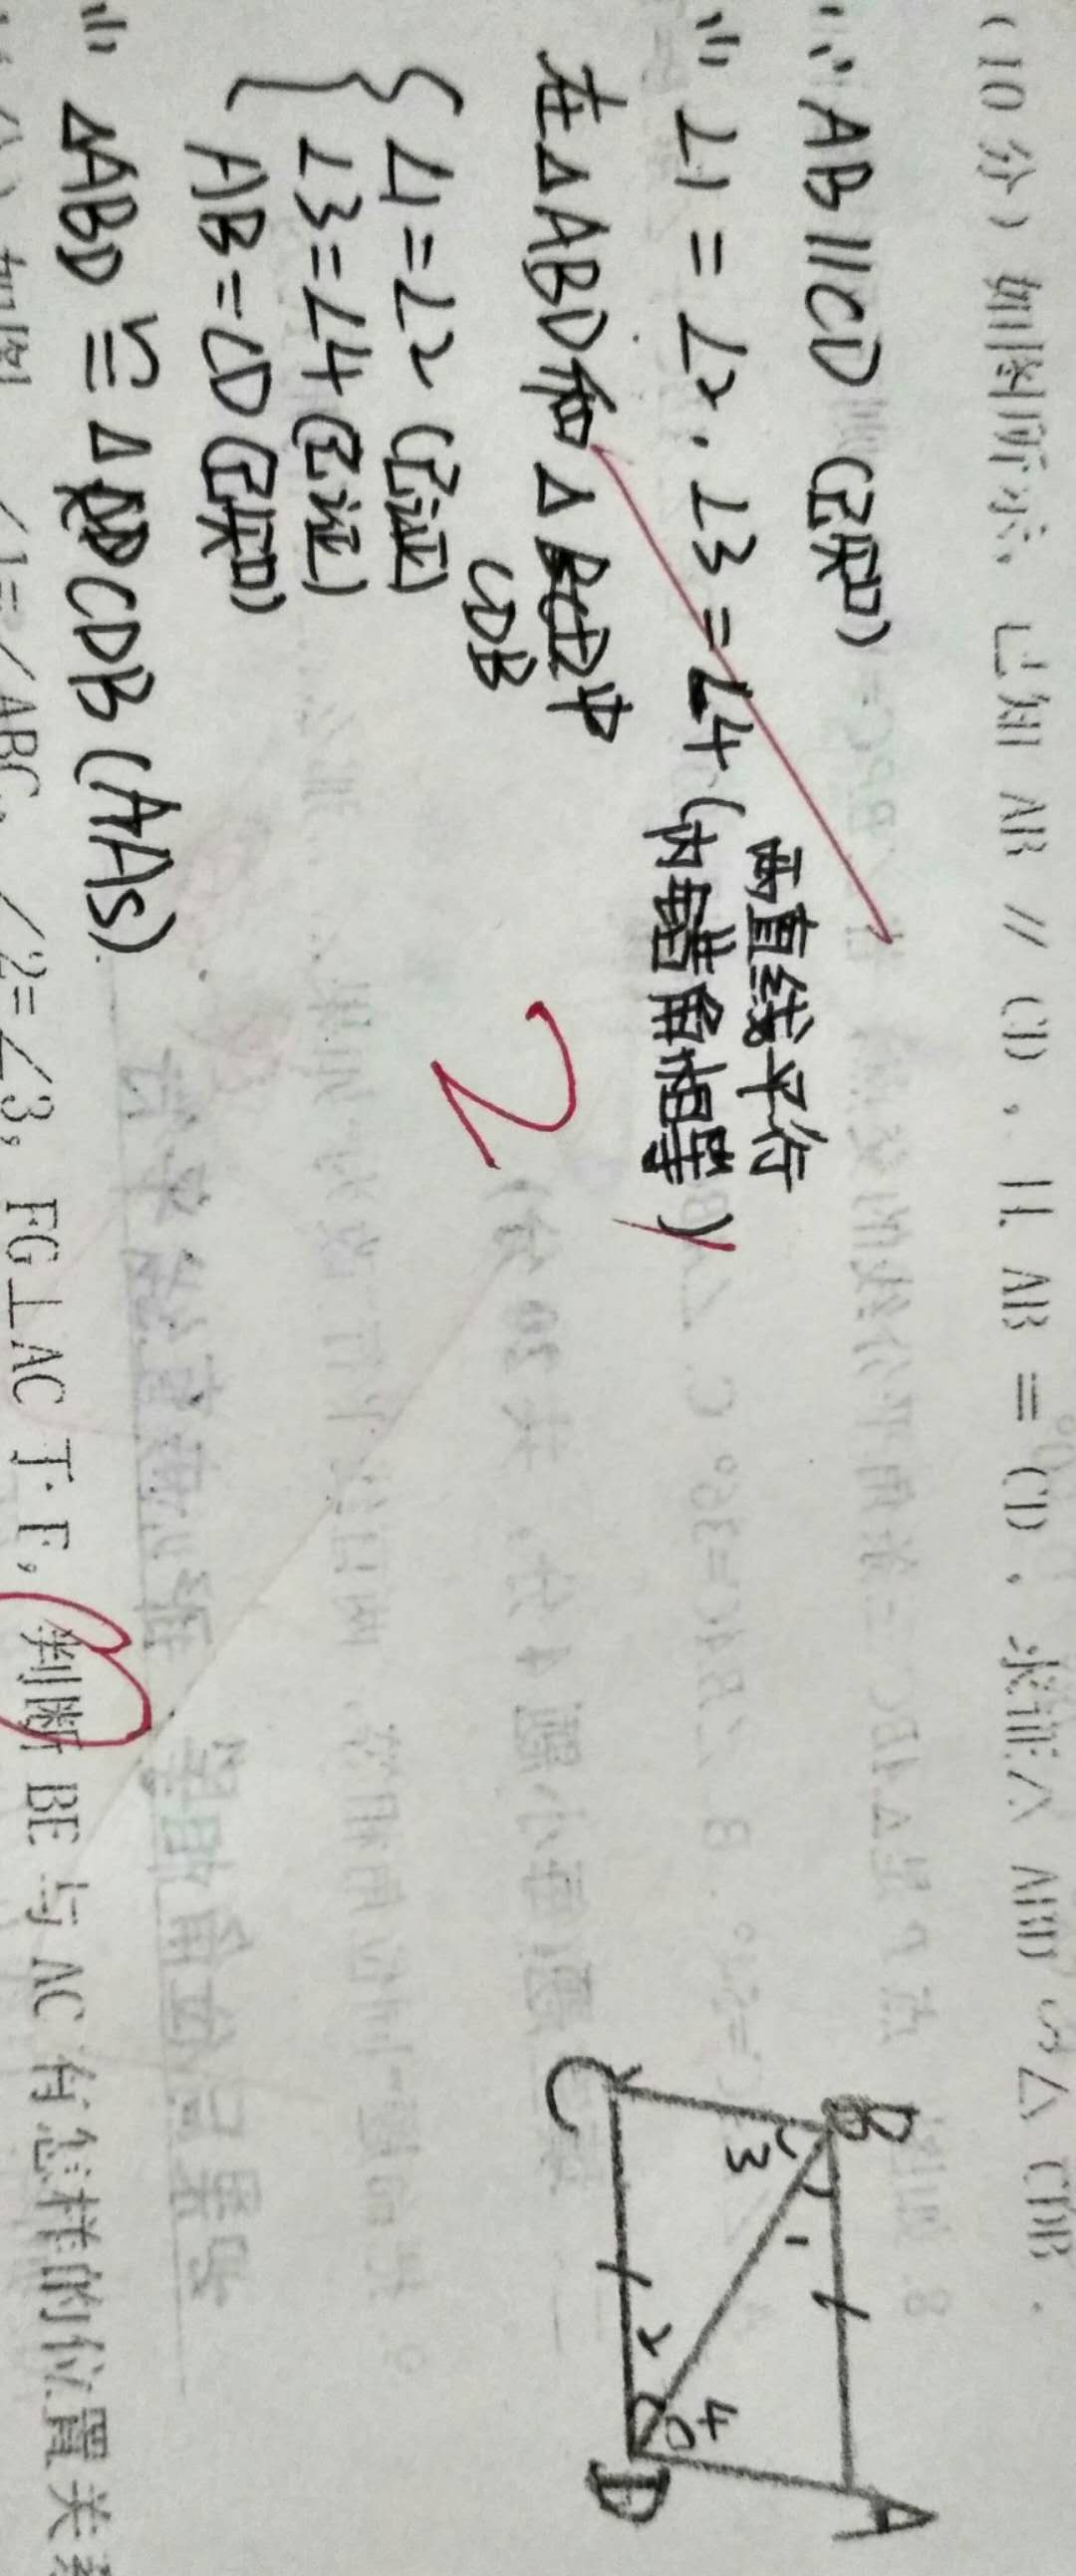 (10 分) 如图所示, 已知 AB // CD, 且 AB = CD, 求证△ ABD ≌△ CDB.
∵ AB∥CD (已知)
∴ ∠1 = ∠2, ∠3 = ∠4 (两直线平行
内错角相等)
在△ABD和△ 中
CDB
∠1=∠2 (已证)
∠3=∠4 (已证)
AB=CD (已知)
∴ △ABD ≌ △CDB (AAS)
2
B
A
C
D
3
1
2
4
如图, ∠1=∠ABC, ∠2=∠3, FG⊥AC 于 F, 判断 BE 与 AC 有怎样的位置关系